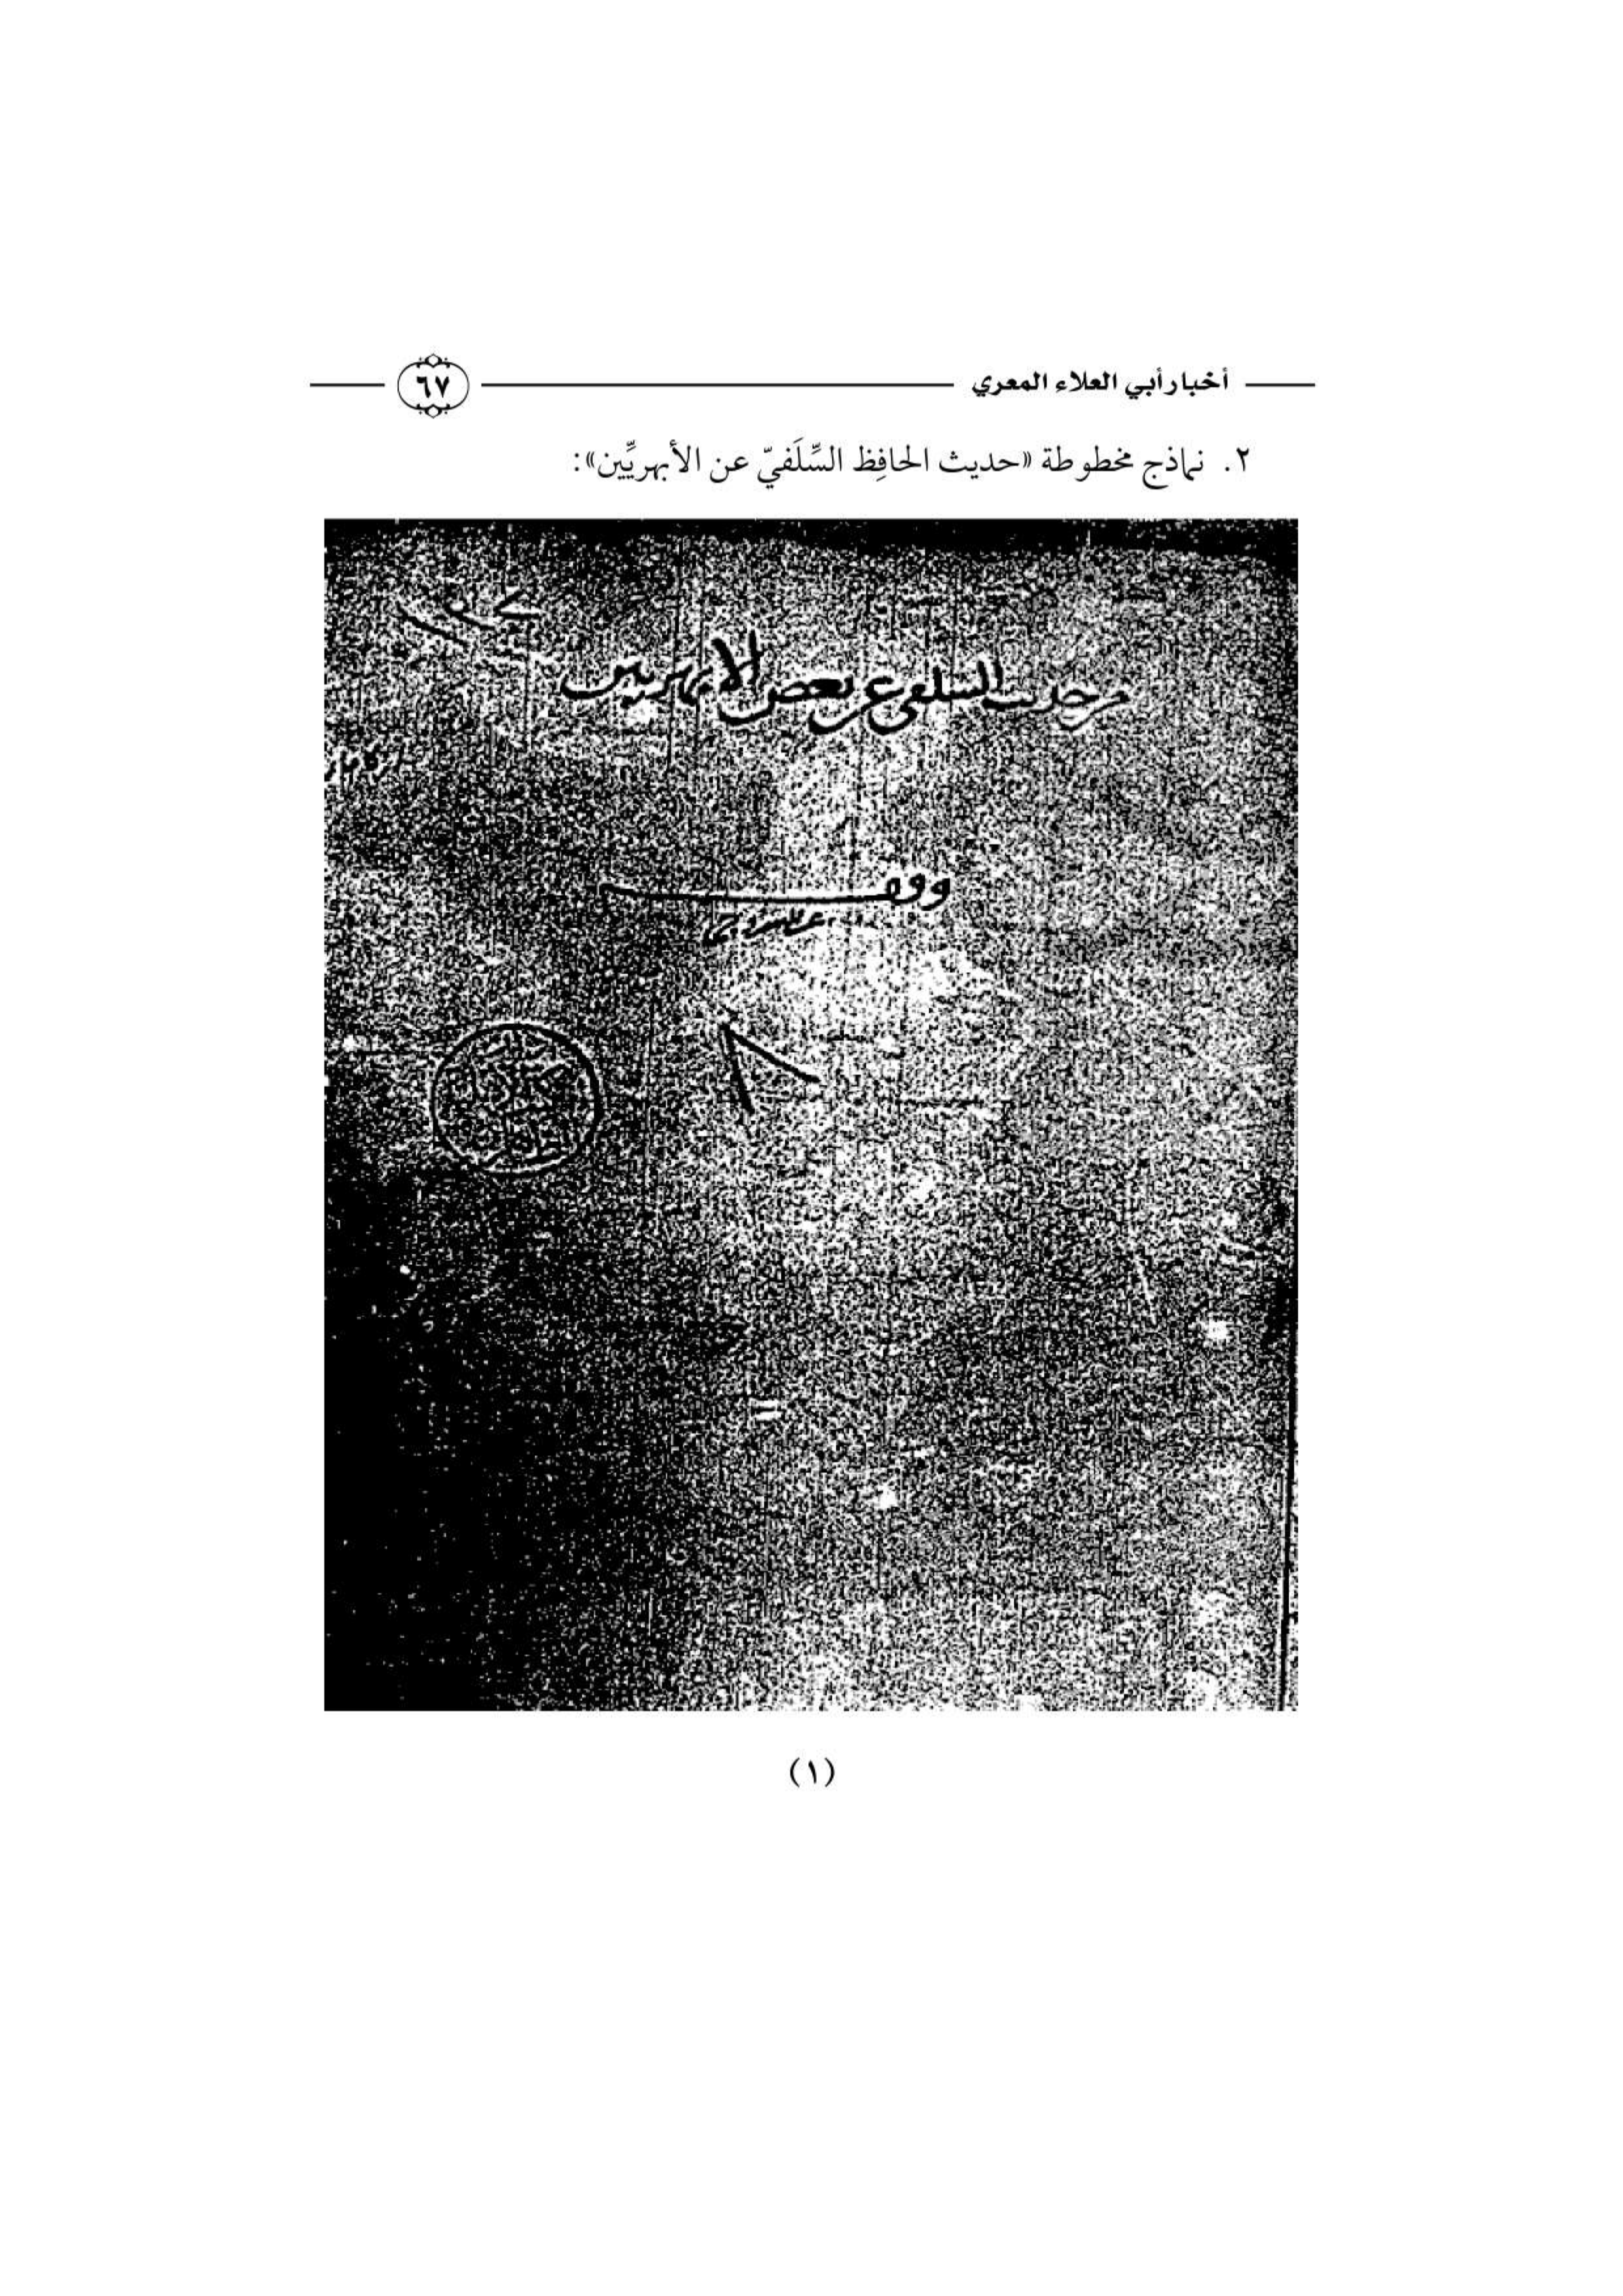 أخبار أبي العلاء المعري
٦٧
٢. نماذج مخطوطة «حديث الحافِظ السِّلَفيّ عن الأبهريِّين»:
من حديث السلفي عن بعض الأبهريين
وقف
(١)